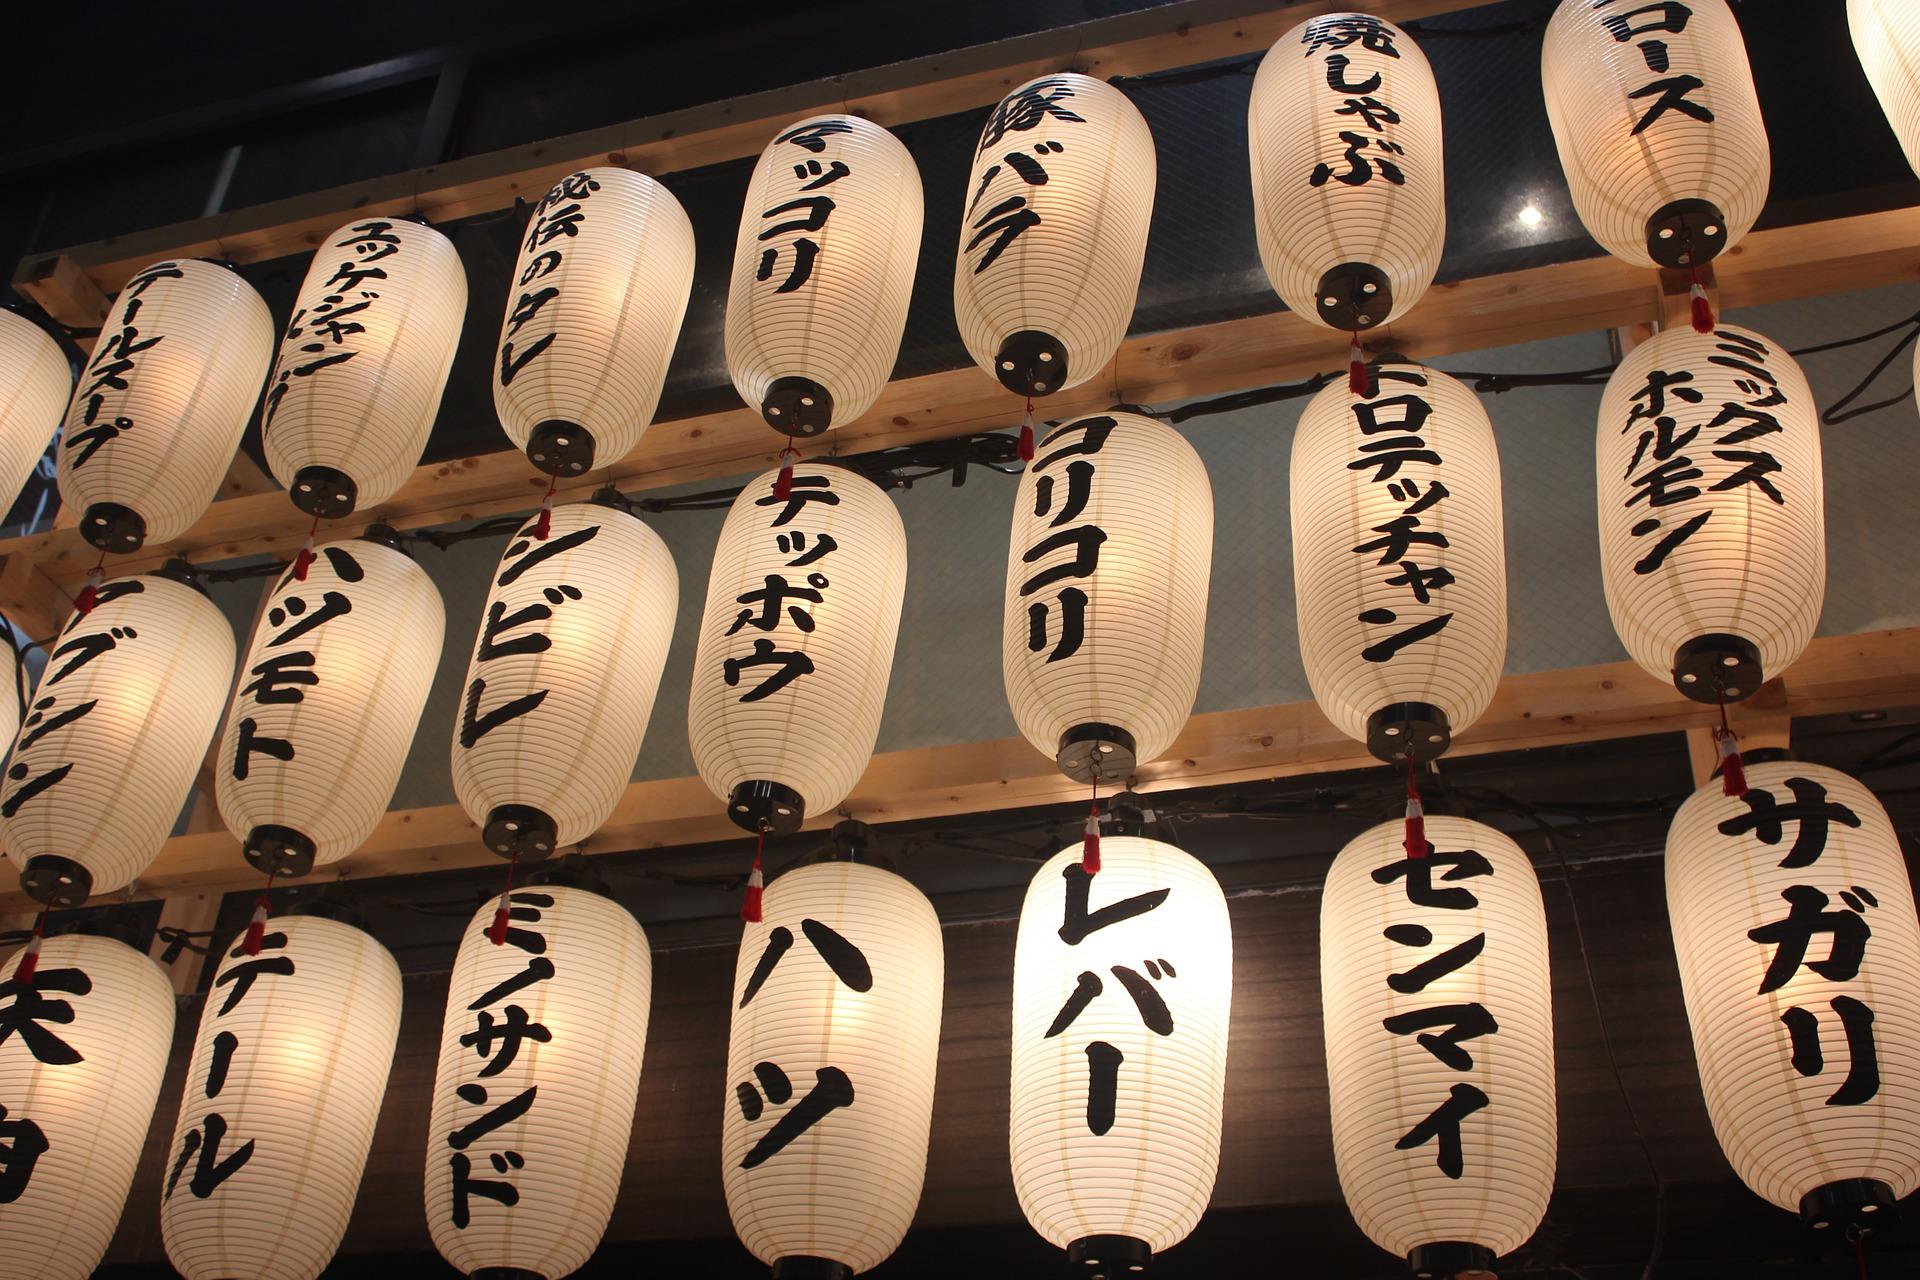 テールスープ
ユッケジャン
秘伝のタレ
マッコリ
豚バラ
焼しゃぶ
ロース
アブシン
ハツモト
シビレ
テッポウ
コリコリ
トロテッチャン
ミックス
ホルモン
テール
ミノサンド
ハツ
レバー
センマイ
サガリ